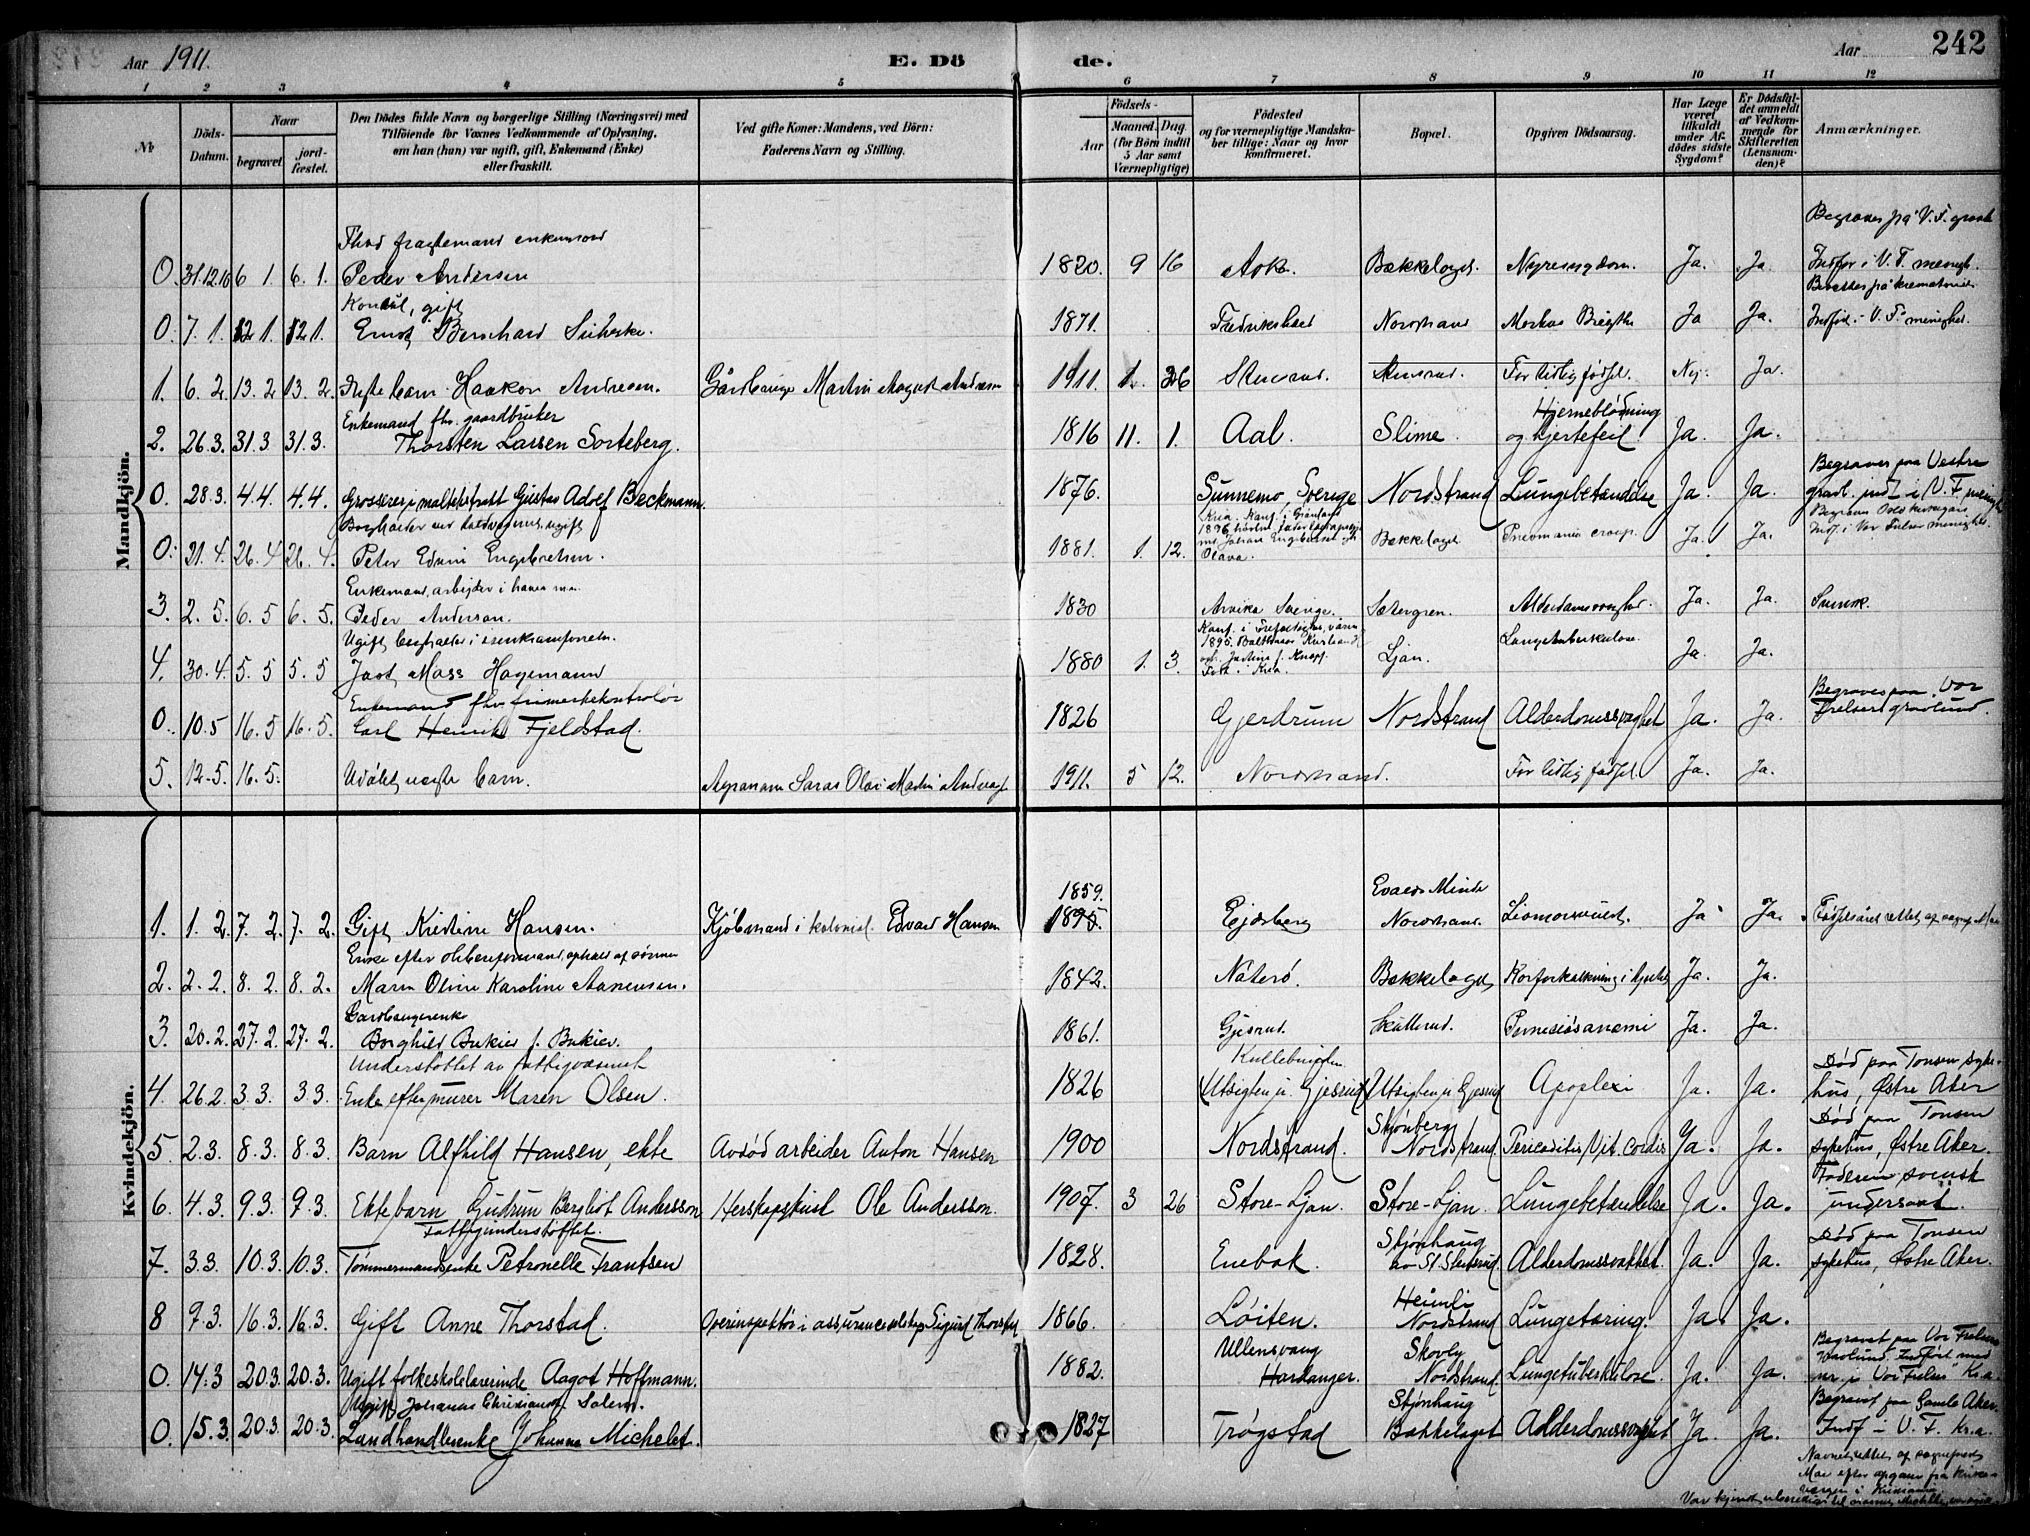 Aar 1911. E. Dö de. Aar 242
1 2 3 4 5 6 7 8 9 10 11 12
No
Döds-Datum.
Naar
begravet
jord-fæstet.
Den Dödes fulde Navn og borgerlige Stilling (Næringsvei) med
Tilföiende for Voxnes Vedkommende af Oplysning,
om han (hun) var ugift, gift, Enkemand (Enke)
eller fraskilt.
Ved gifte Koner: Mandens, ved Börn:
Faderens Navn og Stilling.
Födsels-
Aar
Maaned. Dag.
(for Börn indtil
5 Aar samt
Værnepligtige)
Födested
og for værnepligtige Mandska-
ber tillige: Naar og hvor
konfirmeret.
Bopæl.
Opgiven Dödsaarsag.
Har Læge
været
tilkaldt
under Af-
dödes sidste
Sygdom?
Er Dödsfal-
det anmeldt
af Vedkom-
mende for
Skifteretten
(Lensman-
den)?
Anmærkninger.
Mandkjön.
Begraves på V. F. gravl
Fhvd fragtemand enkemand
0. 31.12.10 6 1. 6. 1. Peder Andersen 1820. 9 16 Ask. Bækkelaget. Nyresygdom. Ja. Ja. Indfør i V. F. menigh.
Konsul, gift
0. 7. 1. 12 1. 12 1. Ernst Bernhard 1871. Fredrikshald Nordstrand Ja Ja. Indfød. V. F. menighet.
1. 6. 2. 13. 2 13. 2. Haakon Andresen. Gårdbruger Martin August Andresen 1911. 1. 26 Stensrud. Stensrud. For tidlig fødsel. Nej. Ja.
Enkemand fhv. gaardbruker Hjerneblødning
2. 26.3. 31.3 31.3. Thorsten Larsen Sorteberg. 1816 11. 1. Aal. Slime. og hjertefeil Ja. Ja.
Begraves paa Vestre
0. 28.3. 4.4. 4.4. Grosserer i maltekstrakt Gustav Adolf Beckmann. 1876. Sunnemo, Sverige Nordstrand Lungebetændelse Ja. Ja. gravl. indf i V. F menigh
ugift
0. 21.4. 26.4 26.4. Peter Edvin Engebretsen. 1881. 1. 12. Olava. Bækkelaget Pneumonia croup. Ja. Ja.
Enkemand, arbejder i haven
3. 2. 5. 6. 5 6. 5. Peder Anderson. 1830 Arvika Sverige. Sætergren. Alderdomssvaghed. Ja. Ja. Svensk.
Ugift
4. 30.4. 5. 5 5. 5 Mass Hagemann 1880 1. 3. Ljan. Lungetuberkulose. Ja. Ja.
Enkemand fhv. frimerkekontrolør Begraves paa Vor
0. 10.5 16.5 16.5. Carl Henrik Fjeldstad. 1826 Gjerdrum Nordstrand Alderdomssvaghet Ja. Ja. Frelsers gravlund.
5. 12.5. 16.5. Udøbt uægte barn. 1911. 5 12. Nordstrand. For tidlig fødsel. Ja. Ja.
Kvindekjön.
1859.
1. 1. 2. 7. 2. 7. 2. Gift Kristine Hansen. Kjøbmand i kolonial. Edvard Hansen 1895. Nordstrand. Ja Ja.
2. 2. 2. 8. 2. 8. 2. Maren Olivie Karoline 1842. Nøterø. Bækkelaget Ja. Ja.
3. 20.2. 27.2. 27.2. Borghild Bukier f. Bukier. 1861. Gjesrud. Skullerud. Perniciøs anæmi Ja. Ja.
Understøttet av fattigvæsenet Død paa Tonsen syke-
4. 26.2. 3.3. 3.3. Enke efter murer Maren Olsen. 1826 Utsigten u. Gjesrud Utsigten u Gjesrud Apoplexi Ja. Ja. hus, Østre Aker
Skjønberg Død paa Tonsen
5. 2.3. 8.3. 8.3. Barn Alfhild Hansen, ekte Avdød arbeider Anton Hansen 1900 Nordstrand. Nordstrand Pericaditis Vit. cordis Ja. Ja. sykehus, Østre Aker.
Faderen svensk
6. 4.3. 9.3. 9.3. Ekte barn Gudrun Bergliot Andersson Herskapskusk Ole Andersson. 1907. 3 26 Store-Ljan. Store-Ljan. Lungebetændelse Ja. Ja. undersaat.
Fattigunderstøttet. Skjønhaug Død paa Tonsen
7. 3.3. 10.3. 10.3. Tømmermandsenke Petronelle Frantsen 1828. Enebak. Alderdomssvakhet. Ja. Ja. sykehus, Østre Aker.
Heimli
8 9.3. 16.3. 16.3. Gift Anne Thorstad. Overinspektør i assuranceselskap Sigurd Thorstad 1866. Løiten. Nordstrand Lungetæring. Ja. Ja.
Ullensvang Skovly Begravet paa Vor Frelsers
0. 14.3 20.3. 20.3. Ugift folkeskolelærerinde Aagot Hoffmann. 1882. Hardanger. Nordstrand. Lungetuberkulose. Ja. Ja.
Skjønhaug Begravet paa Gamle Aker
0. 15.3. 20.3. 20.3. Landhandlerenke Johanne Michelet. 1827 Trøgstad Bækkelaget Alderdomssvaghet Ja. Ja. Indf i V. F. Kr.a.